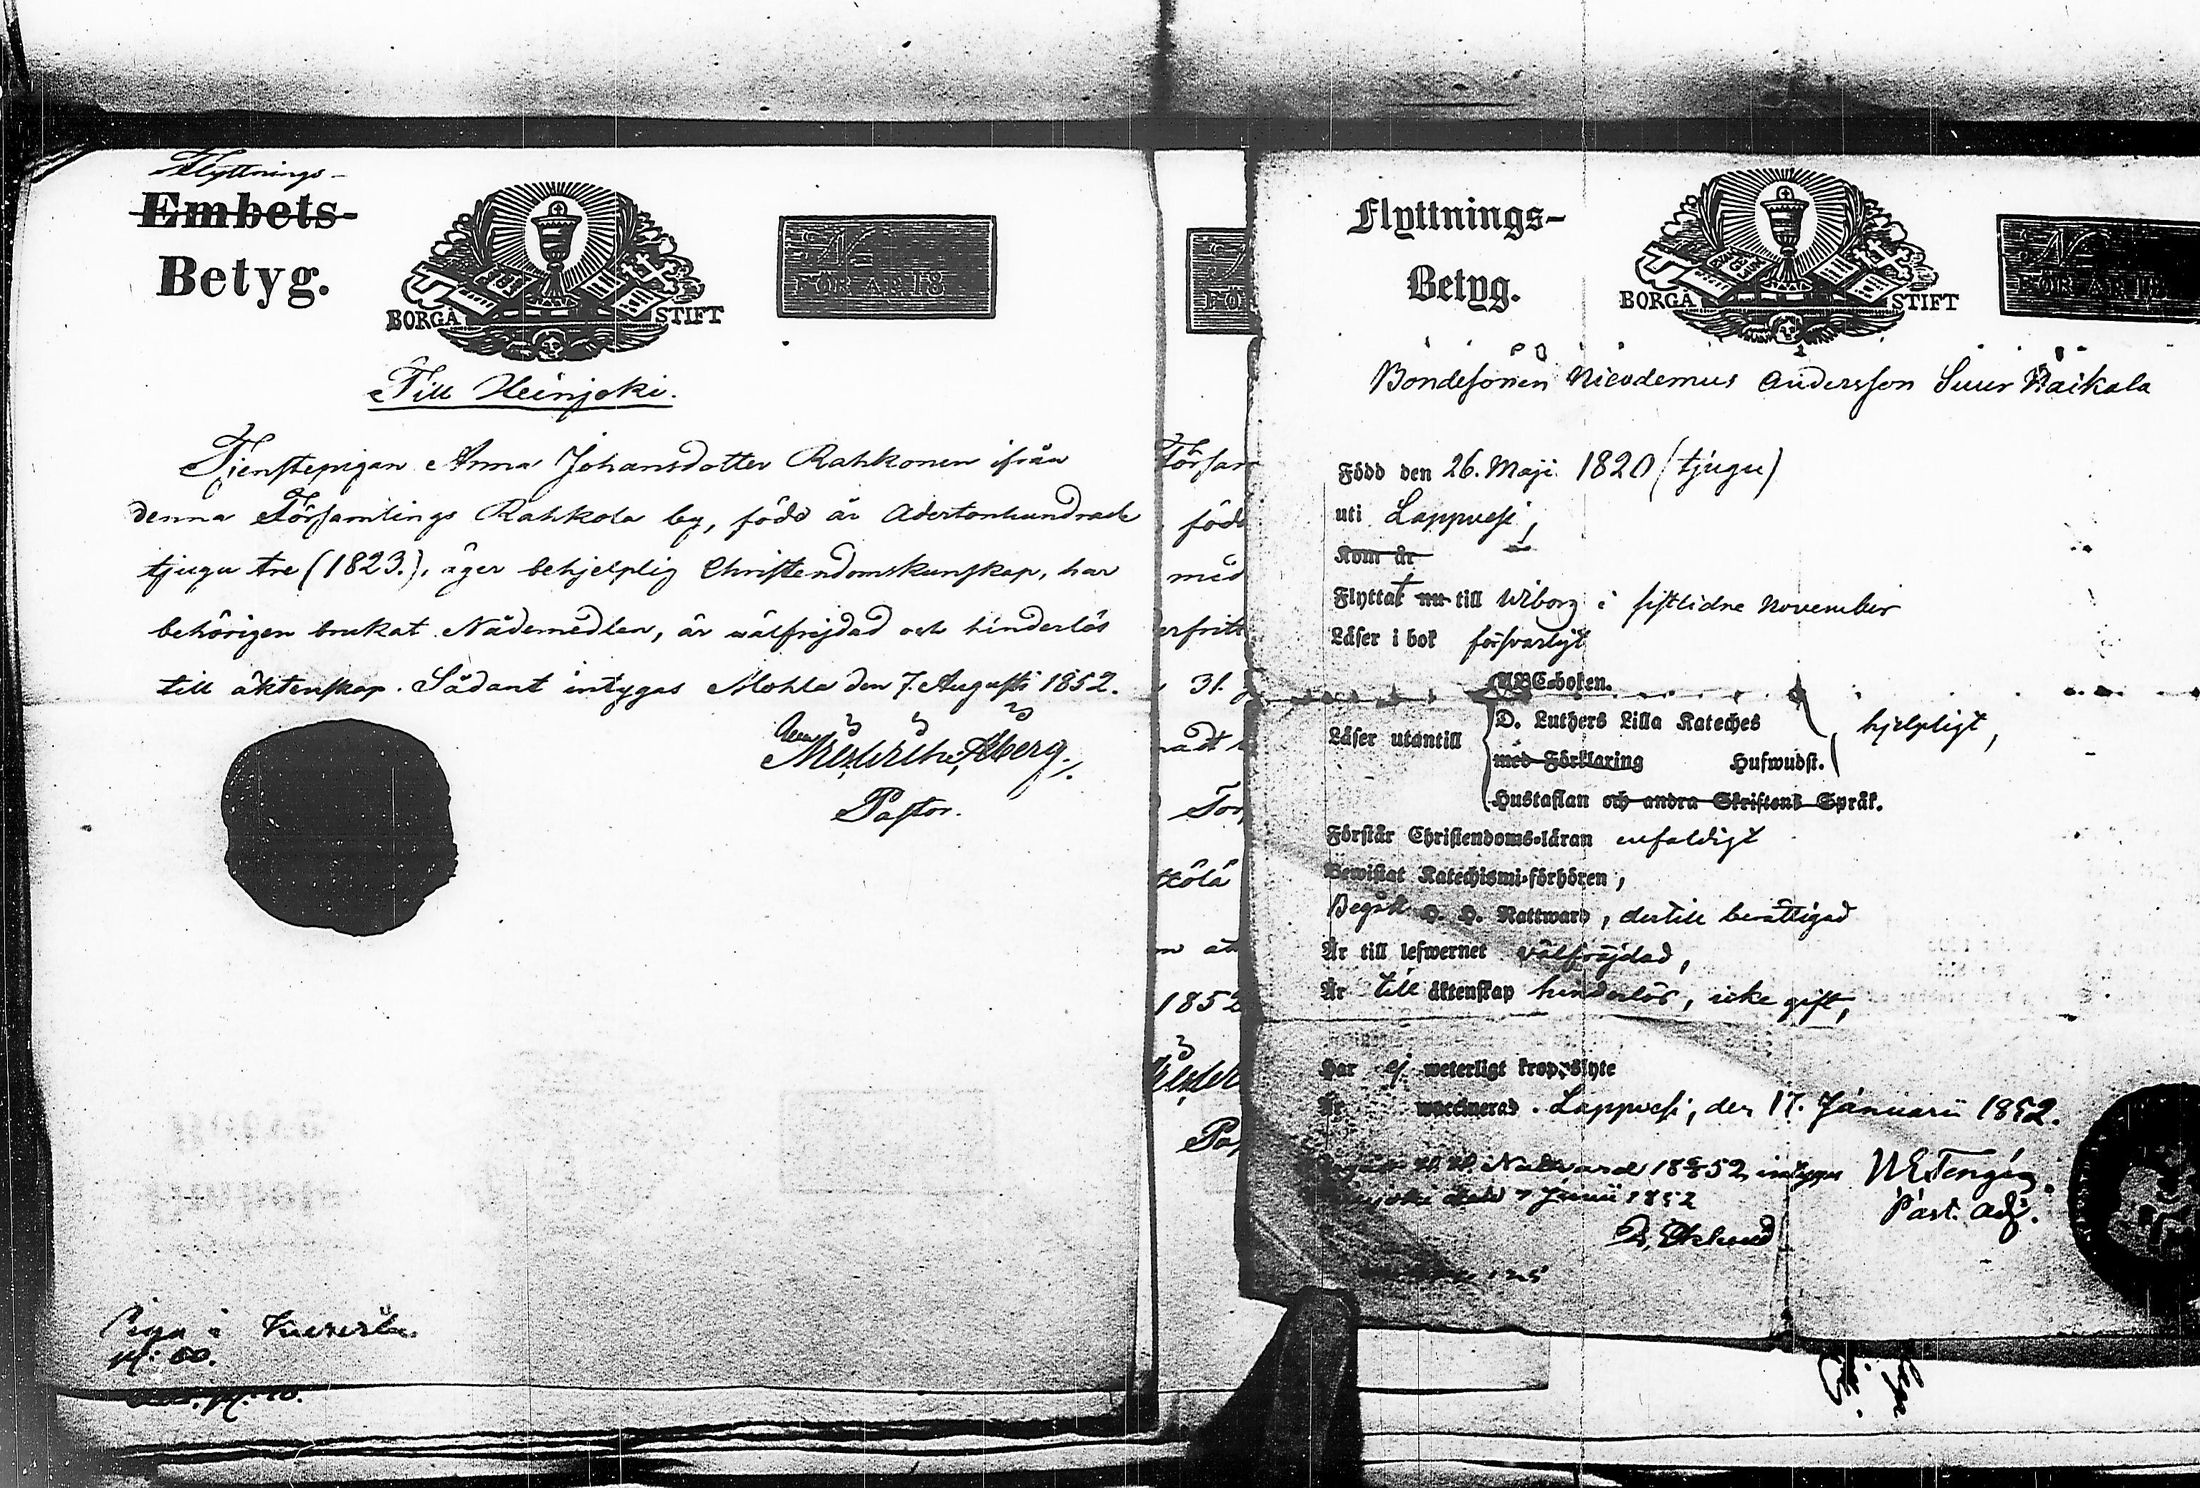 Flyttnings-
Embets-
Betyg.
BORGÅ STIFT
N
FÖR ÅR 18
Till Heinjoki.
Tjenstepigan Anna Johansdotter Rahkonen ifrån
denna Församlings Rahkola by, född år Adertonhundrade
tjugu tre (1823.), äger behjelplig Christendomskunskap, har
behörigen brukat Nådemedlen, är wälfrejdad och hinderlös
till äktenskap. Sådant intygas Mohla den 7. Augusti 1852.
Åberg.
Pastor.
Piga i
pl: 60.
Försam
född
med
31.
1852
Pa
Flyttnings-
Betyg.
BORGÅ STIFT
N
FÖR ÅR 18
Bondesonen Nicodemus Andersson Suur Raikala
Född den 26. Maji 1820 (tjugu)
uti Lappvesi,
Kom år
Flyttat nu till Wiborg i sistlidne November
Läser i bok försvarligt
ABC-boken.
Läser utantill
D. Luthers Lilla Kateches
med Förklaring Hufwudst.
hjelpligt,
Hustaflan och andra Skriftens Språk.
Förstår Christendoms-läran enfaldigt
Bewistat Katechismi-förhören,
Begått H. H. Nattward, dertill berättigad
Är till lefwernet välfrejdad,
Är till äktenskap hinderlös, icke gift,
Har ej weterligt kroppslyte
Är waccinerad. Lappvesi, den 17. Januarii 1852.
H. H. Nattvard 18 52, intygar
den 7 Junii 1852
Past. Adj.
125